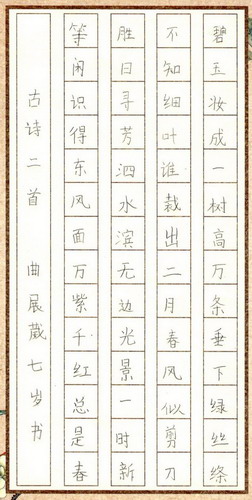 碧玉妆成一树高万条垂下绿丝绦
不知细叶谁裁出二月春风似剪刀
胜日寻芳泗水滨无边光景一时新
等闲识得东风面万紫千红总是春
古诗二首 曲展葳七岁书